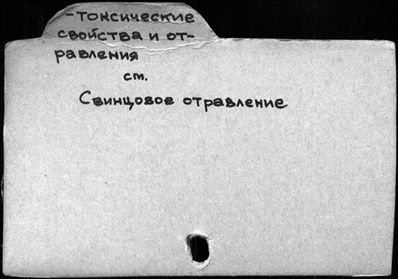 -токсические
свойства и от-
равления
см.
Свинцовое отравление